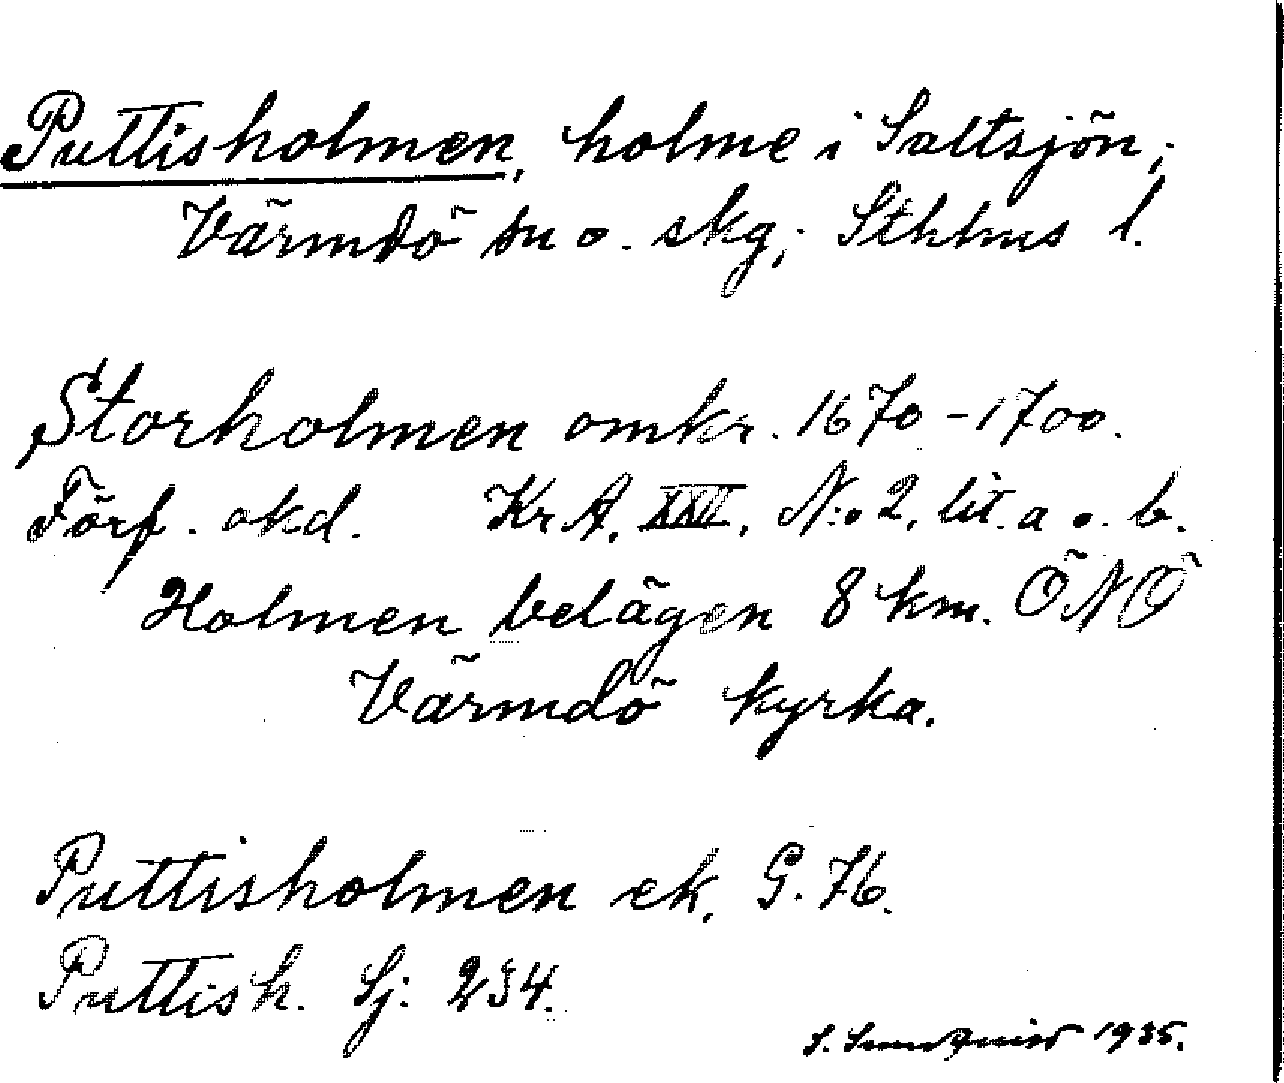 Puttisholmen, holme i Saltsjön;
Värmdö sn o. skg; Sthlms l.
Storholmen omkr. 1670-1700.
Förf. okd. Kr A. XXVI. N:o 2. lit. a o. b.
Holmen belägen 8 km. ÖNÖ
Värmdö kyrka.
Puttisholmen ek. G. 76.
Puttish. Sj: 234.
S. Sundquist 1935.